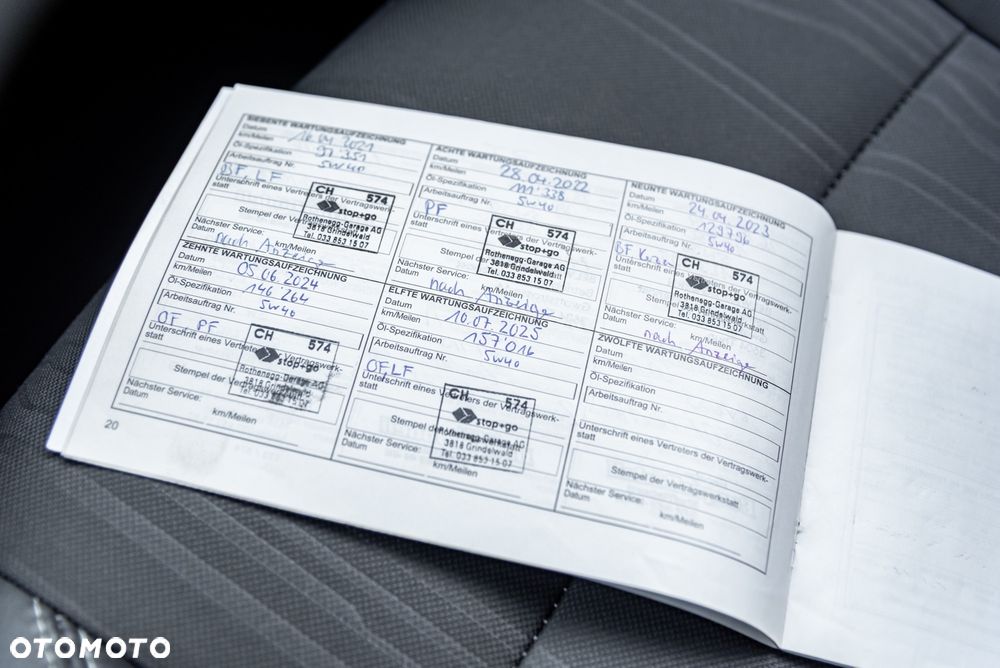 SIEBENTE WARTUNGSAUFZEICHNUNG
Datum 16.04 2021
km/Meilen 97 351
Öl-Spezifikation 5W40
Arbeitsauftrag Nr.
BF, LF
Unterschrift eines Vertreters der Vertragswerk-
statt
Stempel der
CH 574
stop+go
Rothenegg-Garage AG
3818 Grindelwald
Tel. 033 853 15 07
Nächster Service:
Datum nach Anzeige km/Meilen
ACHTE WARTUNGSAUFZEICHNUNG
Datum 28.04.2022
km/Meilen 111'338
Öl-Spezifikation 5W40
Arbeitsauftrag Nr.
PF
Unterschrift eines Vertreters der Vertragswerk-
statt
Stempel der
CH 574
stop+go
Rothenegg-Garage AG
3818 Grindelwald
Tel. 033 853 15 07
Nächster Service:
Datum nach Anzeige km/Meilen
NEUNTE WARTUNGSAUFZEICHNUNG
Datum 24.04.2023
km/Meilen 129796
Öl-Spezifikation 5W40
Arbeitsauftrag Nr.
BF
Unterschrift eines Vertreters der Vertragswerk-
statt
Stempel der
CH 574
stop+go
Rothenegg-Garage AG
3818 Grindelwald
Tel. 033 853 15 07
Nächster Service:
Datum nach Anzeige km/Meilen
ZEHNTE WARTUNGSAUFZEICHNUNG
Datum 05 06 2024
km/Meilen 146 264
Öl-Spezifikation 5W40
Arbeitsauftrag Nr.
OF PF
Unterschrift eines Vertreters der Vertragswerk-
statt
Stempel der Vertragswerkstatt
CH 574
stop+go
Rothenegg-Garage AG
3818 Grindelwald
Tel. 033 853 15 07
Nächster Service:
Datum km/Meilen
ELFTE WARTUNGSAUFZEICHNUNG
Datum 10.07.2025
km/Meilen 157'016
Öl-Spezifikation 5W40
Arbeitsauftrag Nr.
OF, LF
Unterschrift eines Vertreters der Vertragswerk-
statt
Stempel der Vertragswerkstatt
CH 574
stop+go
Rothenegg-Garage AG
3818 Grindelwald
Tel. 033 853 15 07
Nächster Service:
Datum km/Meilen
ZWÖLFTE WARTUNGSAUFZEICHNUNG
Datum
km/Meilen
Öl-Spezifikation
Arbeitsauftrag Nr.
Unterschrift eines Vertreters der Vertragswerk-
statt
Stempel der Vertragswerkstatt
Nächster Service:
Datum km/Meilen
20
OTOMOTO